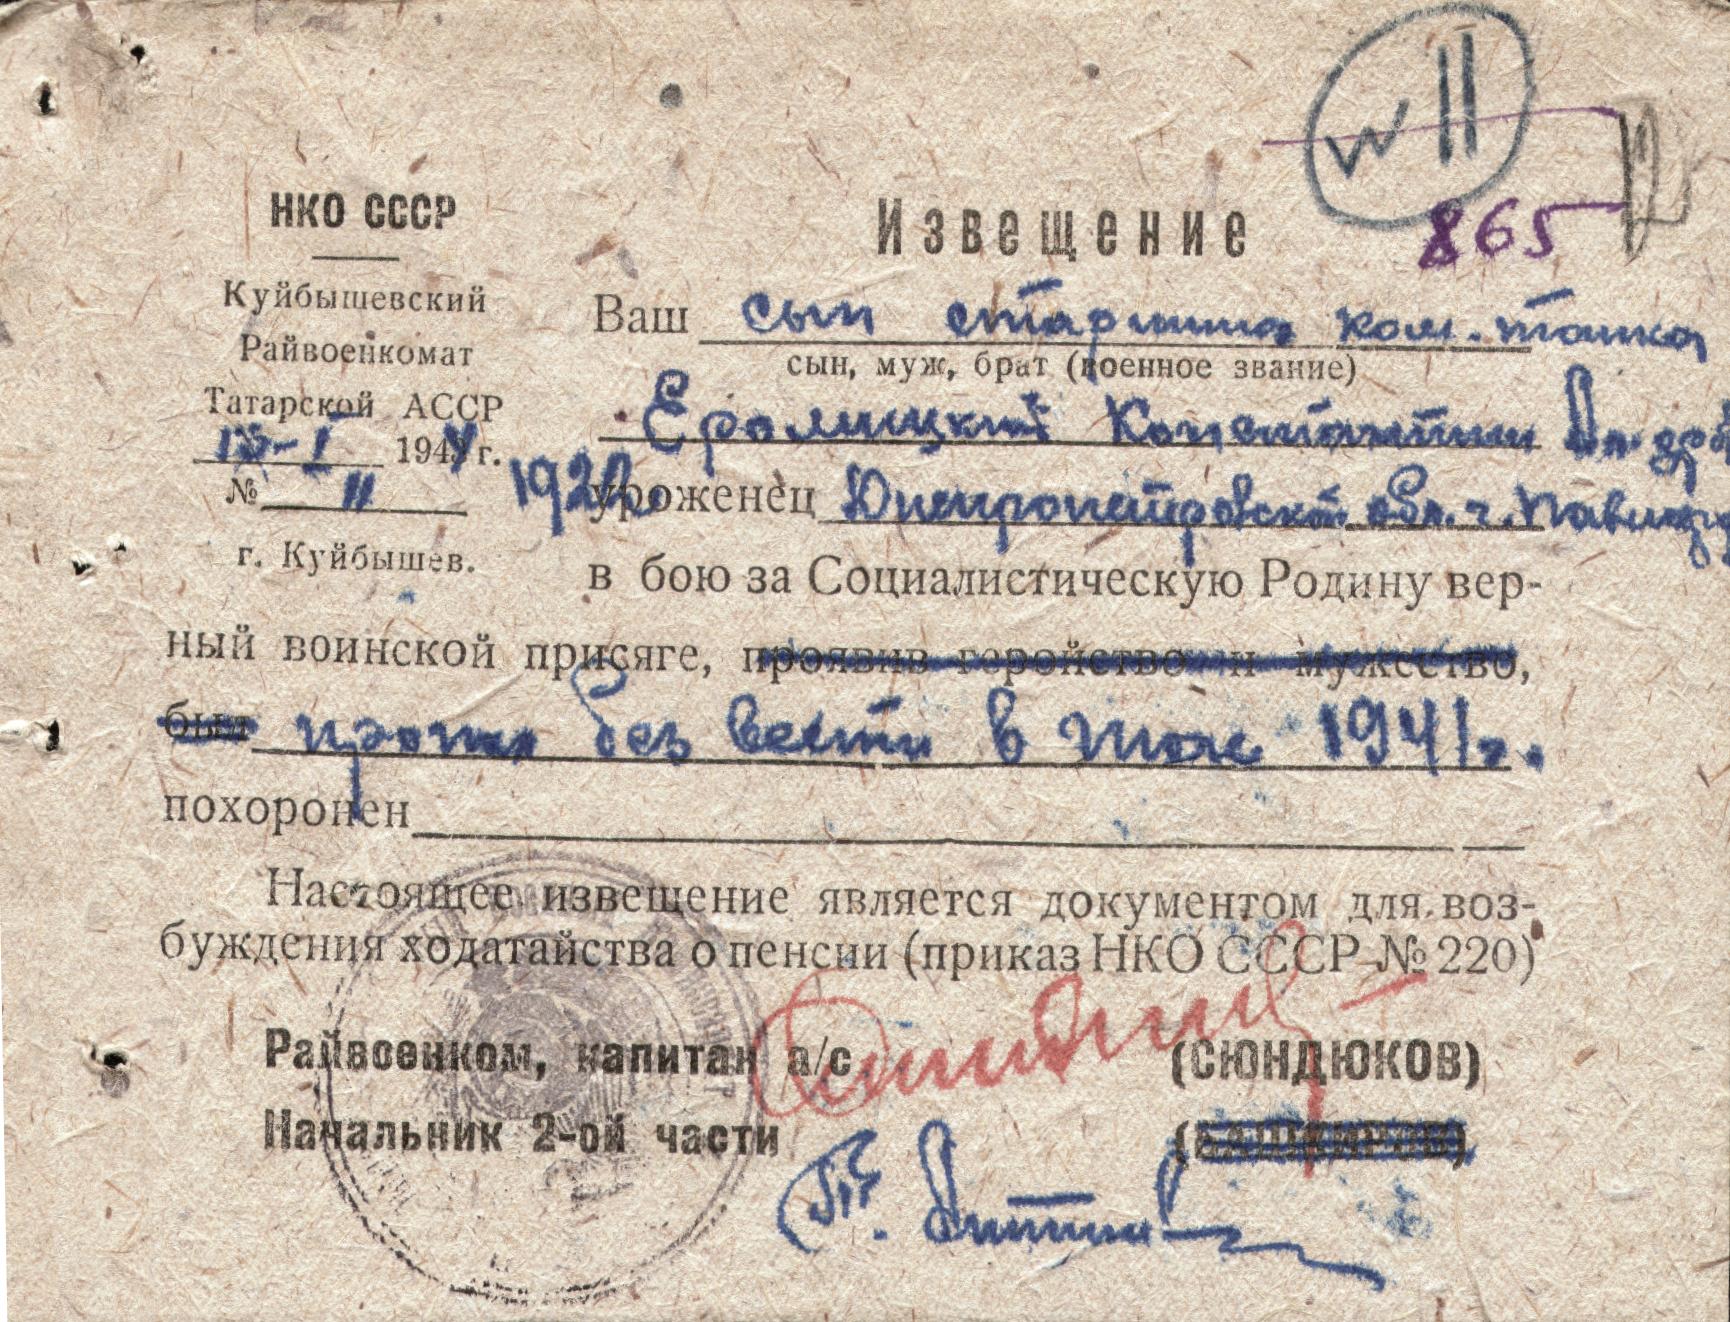 № 11
865
12
НКО СССР
Куйбышевский
Райвоенкомат
Татарской АССР
15-I 1944 г.
№ 11
г. Куйбышев.
Извещение
Ваш сын старшина ком. танка
сын, муж, брат (военное звание)
Еролицкий Константин
1922 уроженец Днепропетровской обл. г.
в бою за Социалистическую Родину вер-
ный воинской присяге, проявив геройство и мужество,
был пропал без вести в 1941 г.
похоронен
Настоящее извещение является документом для воз-
буждения ходатайства о пенсии (приказ НКО СССР № 220)
Райвоенком, капитан а/с (СЮНДЮКОВ)
Начальник 2-ой части (БАШКИРОВ)